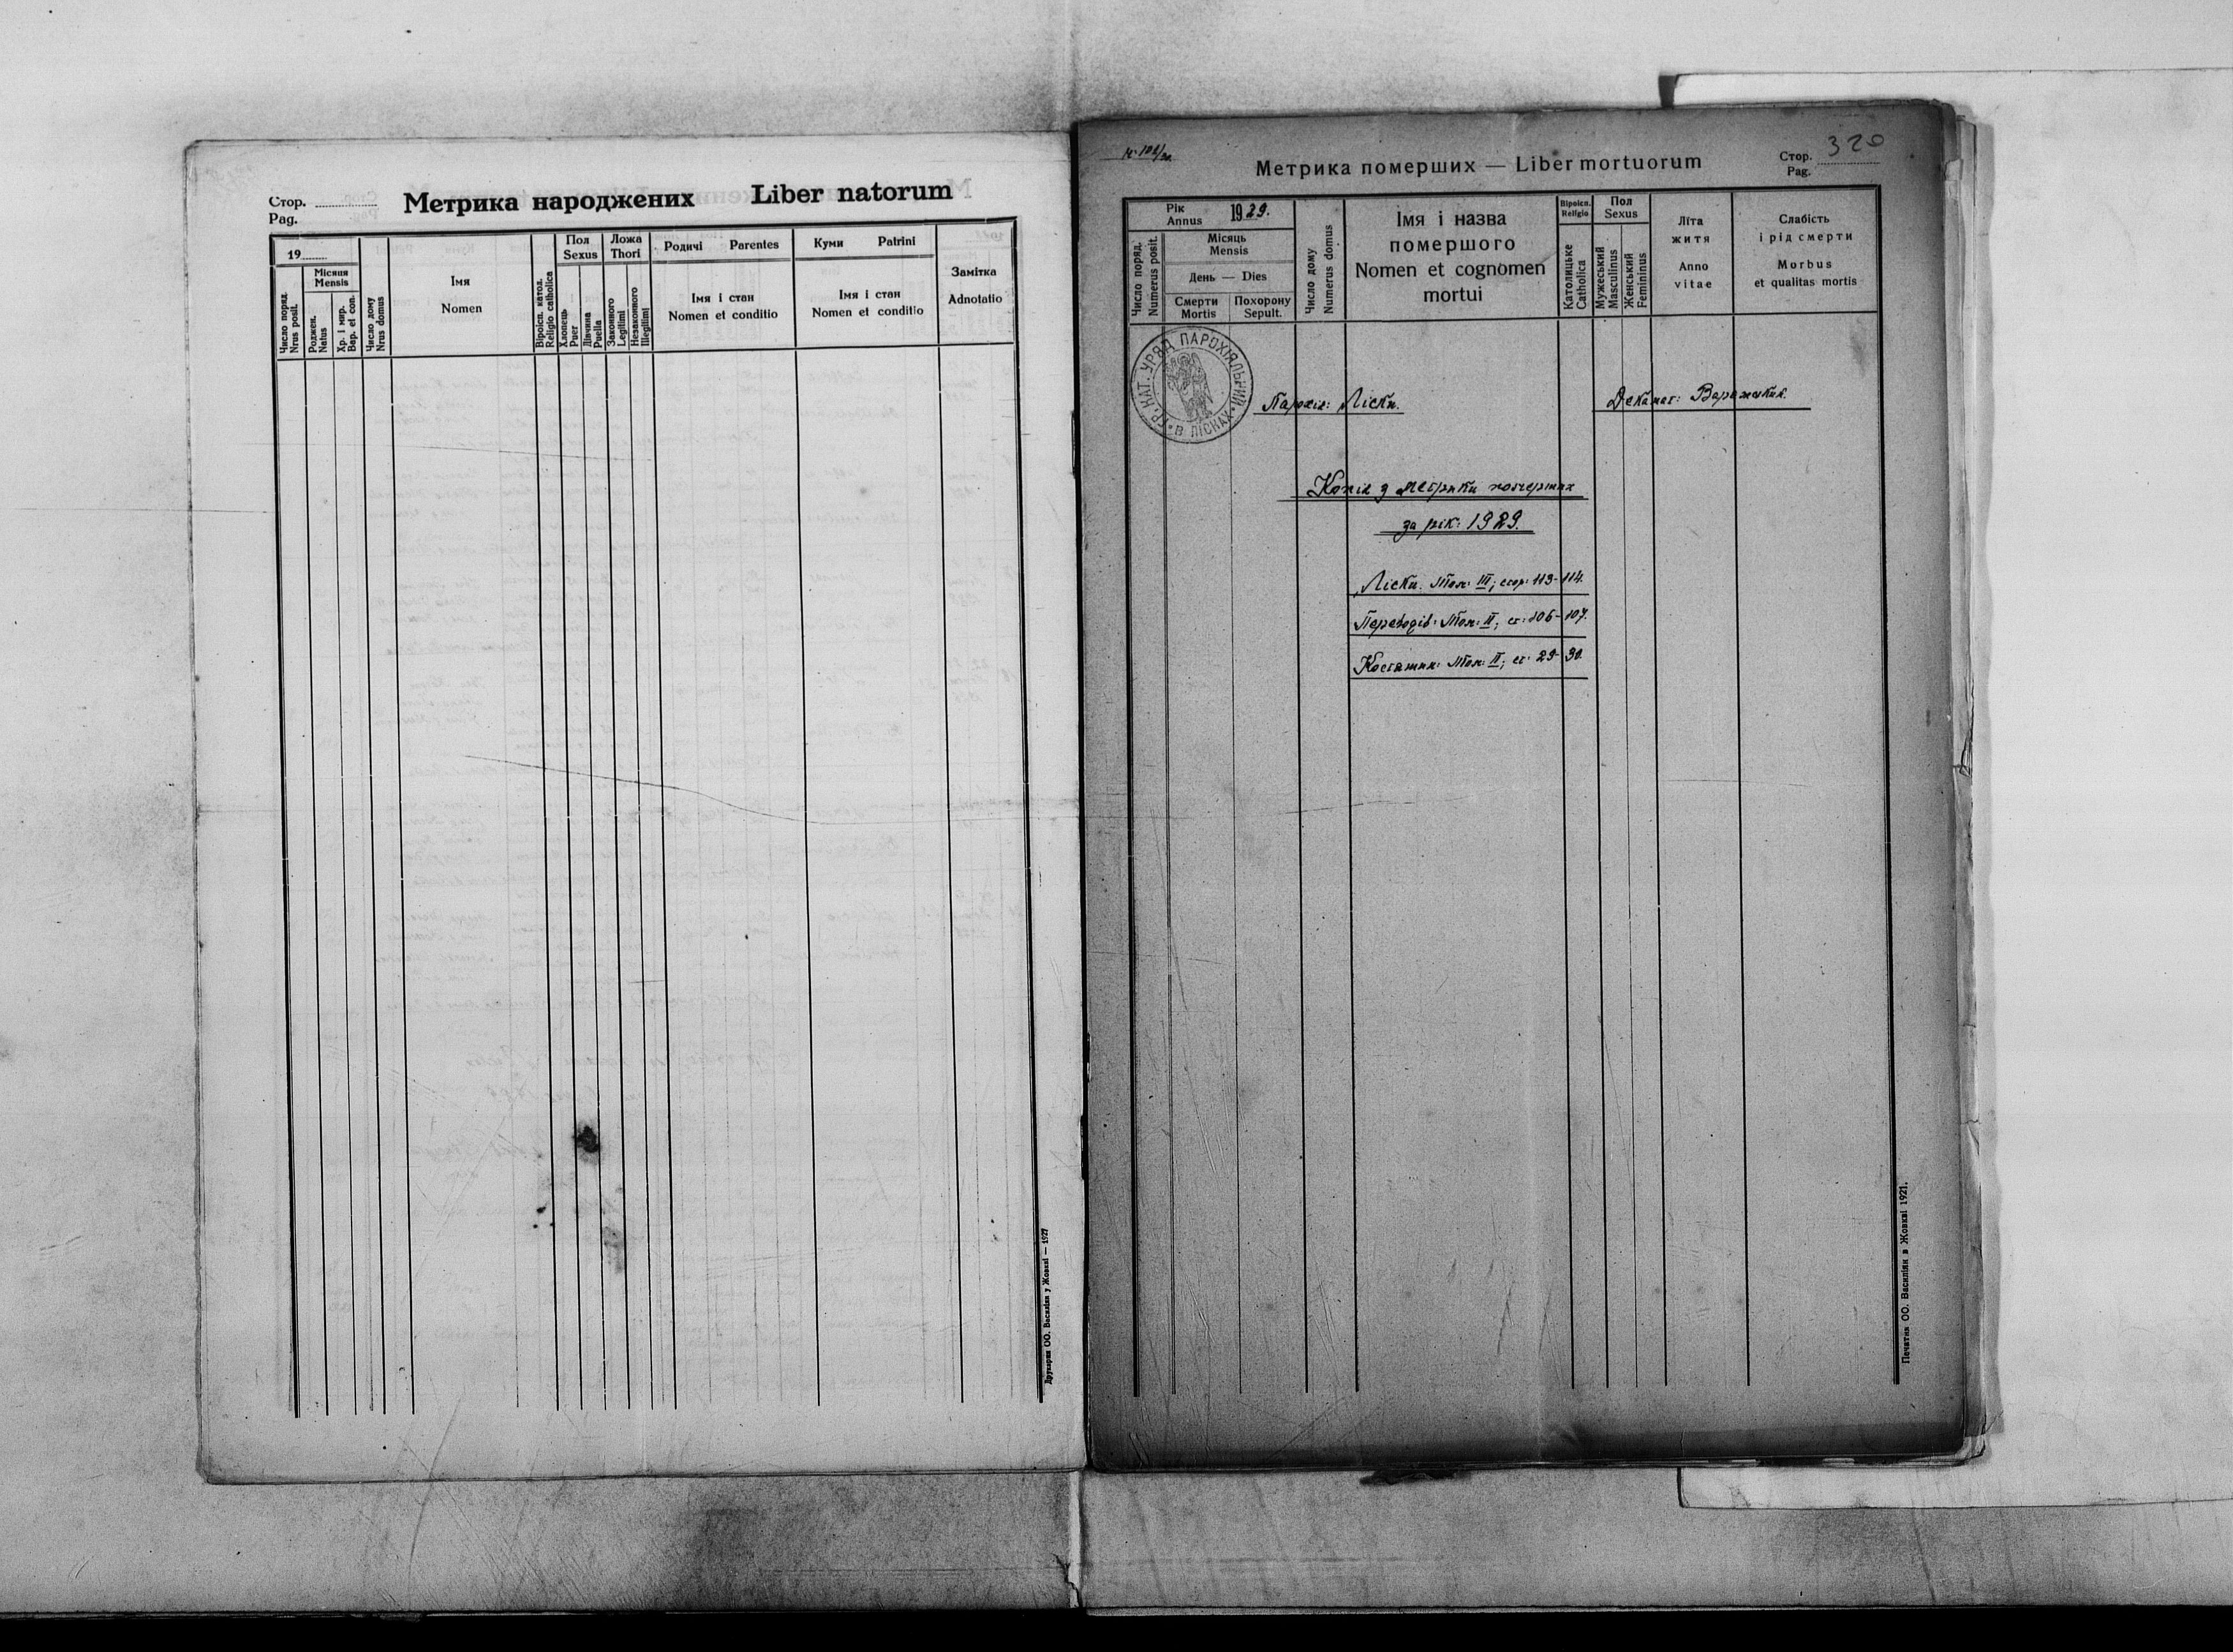 Стор.
Pag.
Метрика народжених Liber natorum
19
Число поряд.
Nrus posit.
Місяця
Mensis
Роджен.
Natus
Хр. і мир.
Bap. et con.
Число дому
Nrus domus
Імя
Nomen
Віроісп. катол.
Religio catholica
Пол
Sexus
Хлопець
Puer
Дівчина
Puella
Ложа
Thori
Законного
Legitimi
Незаконного
Illegitimi
Родичі Parentes
Імя і стан
Nomen et conditio
Куми Patrini
Імя і стан
Nomen et conditio
Замітка
Adnotatio
Друкарня ОО. Василіян у Жовкві — 1927
Метрика померших — Liber mortuorum
Стор. 320
Pag.
Рік
Annus 1929.
Число поряд.
Numerus posit.
Місяць
Mensis
День — Dies
Смерти
Mortis
Похорону
Sepult.
Число дому
Numerus domus
Імя і назва
помершого
Nomen et cognomen
mortui
Віроісп.
Religio
Католицьке
Catholica
Пол
Sexus
Мужеський
Masculinus
Женський
Femininus
Літа
житя
Anno
vitae
Слабість
і рід смерти
Morbus
et qualitas mortis
ГР. КАТ. УРЯД ПАРОХІЯЛЬНИЙ В ЛІСКАХ
Парохія: Ліски.
Деканат: Варяжский.
Копія з метрики померших
за рік: 1929.
Ліски. Том: III; стор: 113-114.
Переводів: Том: II; ст: 106-107.
Костяшин: Том: II; ст: 29-30.
Печатня ОО. Василіян в Жовкві 1921.